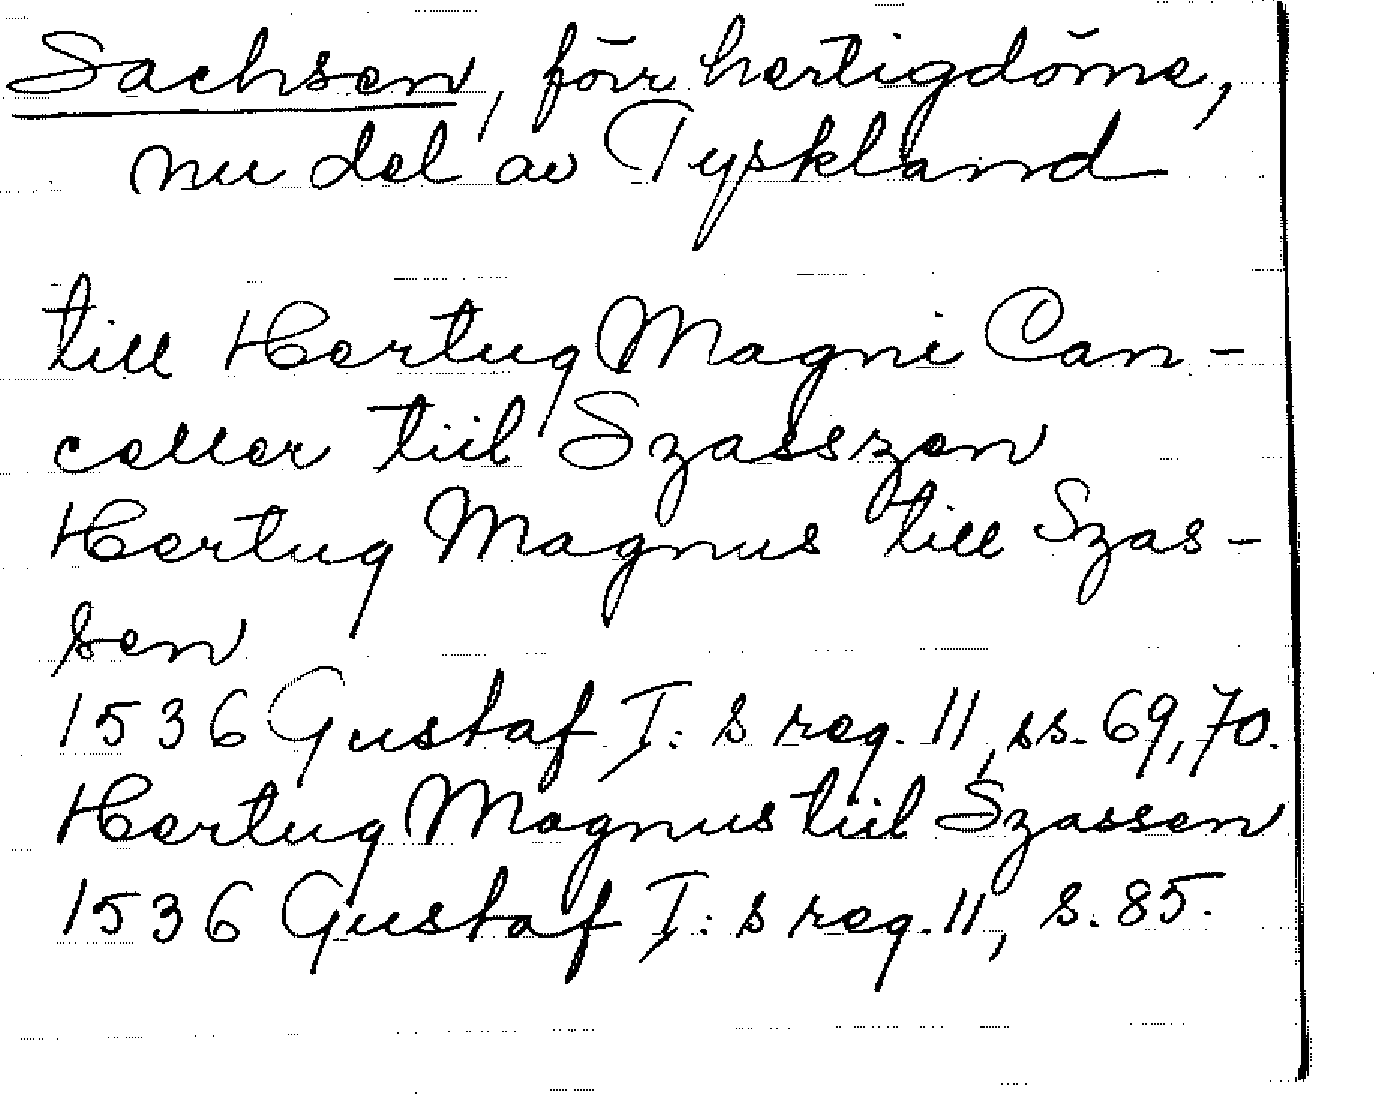 Sachsen, förr hertigdöme,
nu del av Tyskland
till Hertug Magni Can-
celler tiil Szasszen
Hertug Magnus till Szas-
sen
1536 Gustaf I:s reg. 11, ss. 69, 70.
Hertug Magnus tiil Szassen
1536 Gustaf I:s reg. 11, s. 85.